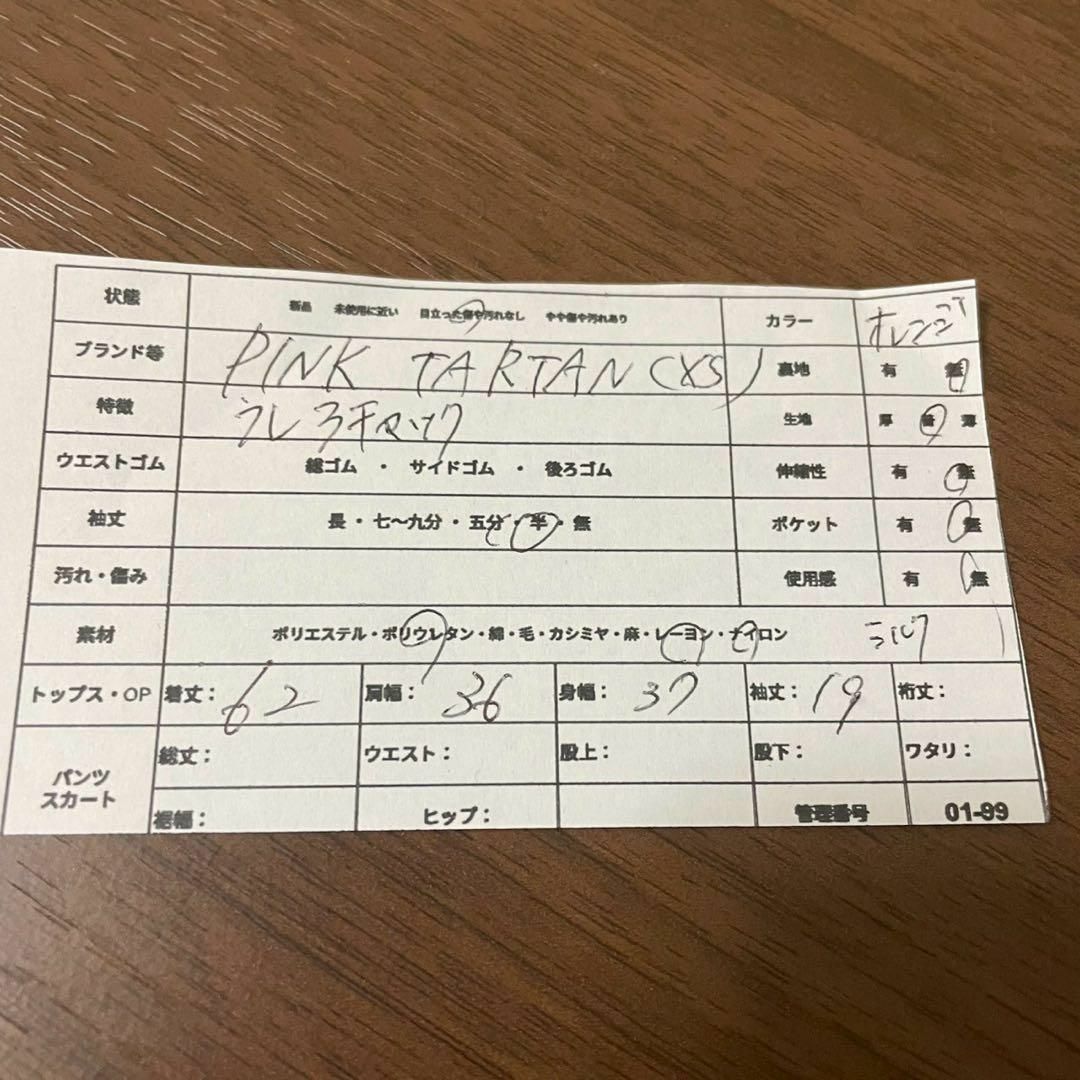 状態 新品 未使用に近い 目立った傷や汚れなし やや傷や汚れあり カラー オレンジ
ブランド等 PINK TARTAN (XS) 裏地 有 無
特徴 うしろチャック 生地 厚 普 薄
ウエストゴム 総ゴム ・ サイドゴム ・ 後ろゴム 伸縮性 有 無
袖丈 長・七〜九分・五分・半・無 ポケット 有 無
汚れ・傷み 使用感 有 無
素材 ポリエステル・ポリウレタン・綿・毛・カシミヤ・麻・レーヨン・ナイロン シルク
トップス・OP 着丈: 62 肩幅: 36 身幅: 37 袖丈: 19 裄丈:
パンツ スカート 総丈: ウエスト: 股上: 股下: ワタリ:
裾幅: ヒップ: 管理番号 01-99